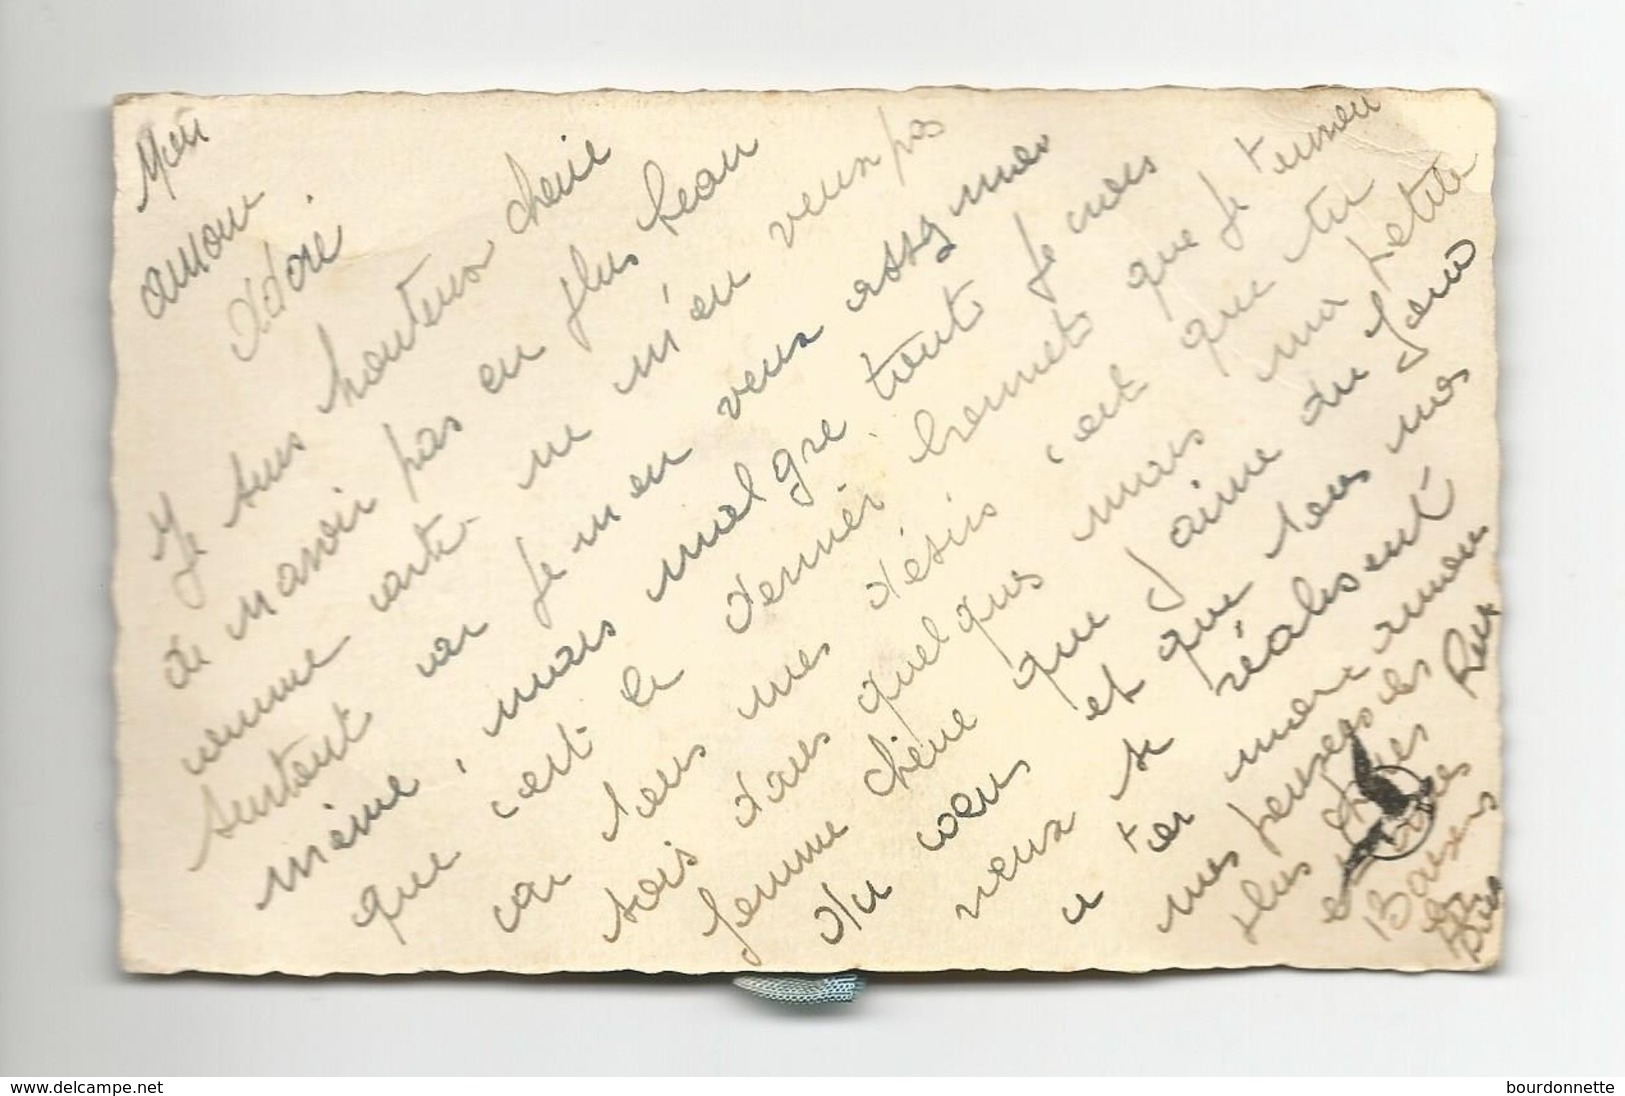 Mon
amour
Adoré
Je suis honteux chérie
de n'avoir pas en plus beau
comme carte ne m'en veux pas
surtout car je m'en veux assez moi
même, mais malgré tout je crois
que c'est le dernier bonnet que je t'envoi
car tous mes désirs c'est que tu
sois dans quelques mois ma petite
femme chérie que j'aime du fond
du cœur et que tous nos
vœux se réalisent
a toi mon amour
mes pensées les
plus chères
et
Baisers
www.delcampe.net
bourdonnette